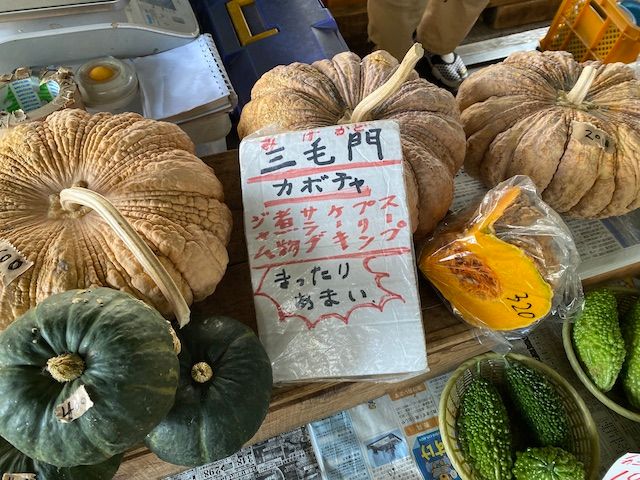 みけかど
三毛門
カボチャ
スープ
プリン
ケーキ
サラダ
煮物
ジャム
まったり
あまい
320